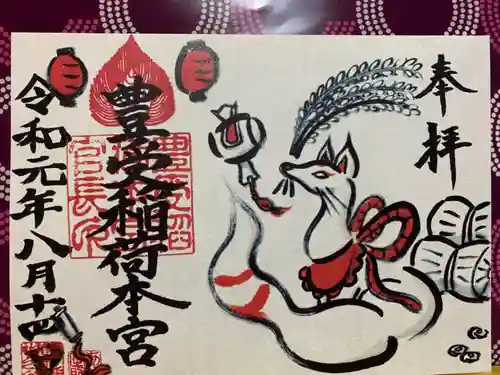 奉拝
豊受稲荷本宮
令和元年八月十四